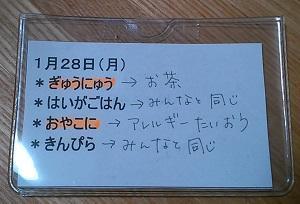 1月28日(月)
*ぎゅうにゅう → お茶
*はいがごはん → みんなと同じ
*おやこに → アレルギーたいおう
*きんぴら → みんなと同じ